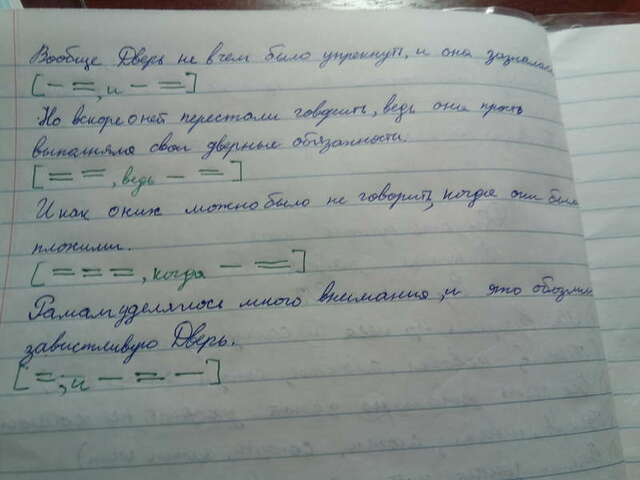 Вообще Дверь не в чем было упрекнуть, и она зазналась
[– =, и – =]
Но вскоре о ней перестали говорить, ведь она просто
выполняла свои дверные обязанности.
[= =, ведь – =]
И как о них можно было не говорить, когда они были
плохими.
[= = =, когда – =]
Рамам уделялось много внимания, и это обозлило
завистливую Дверь.
[= –, и – = –]